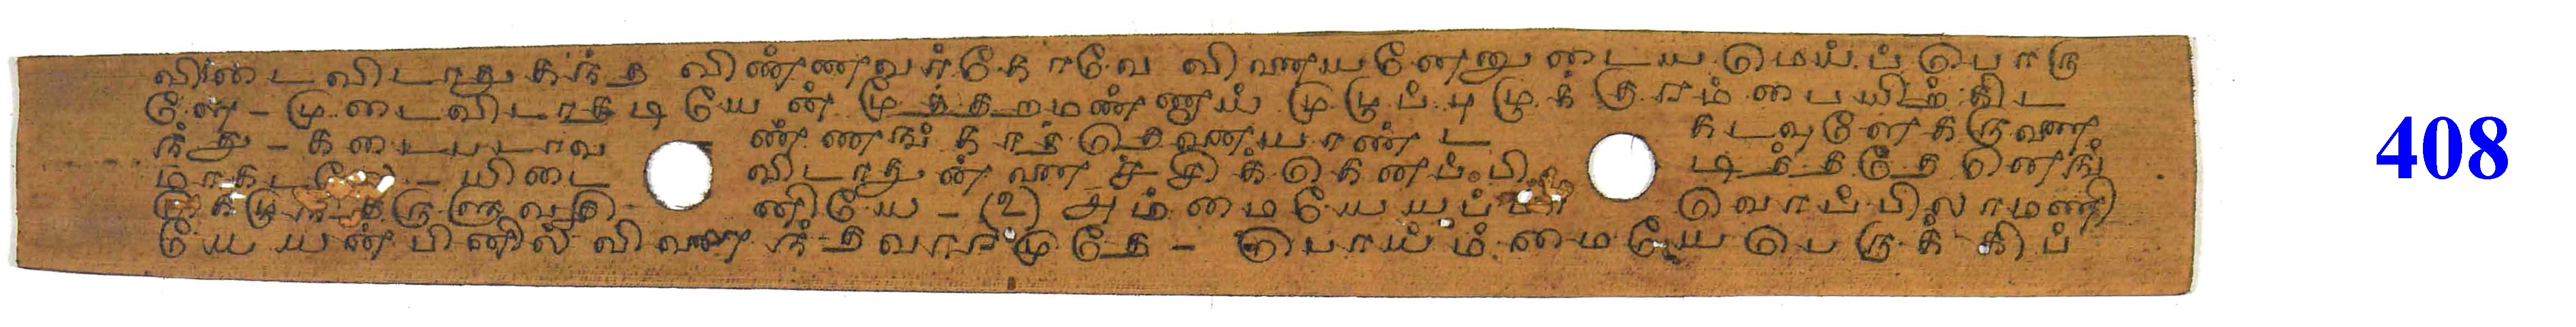 விடைவிடாதுகந்த விண்ணவர்கோவே வினையனேனுடைய மெய்ப்பொரு
ளே - முடைவிடாதடியேன் மூத்தறமண்ணாய் முழுப்புழுக்குரம்பையிற்கிட
ந்து - கடைபடாவ ண்ணங்காத்தெனையாண்ட கடவுளேகருணை
மாகடலே - யிடை விடாதுன்னைச்சிக்கெனப்பி டித்ததேனெங்
கெழுந்தருளுவதி னியே - (2) அம்மையேயப்பா வொப்பிலாமணி
யே யன்பினில்விளைந்தவாரமுதே - பொய்ம்மையேபெருக்கிப்
408